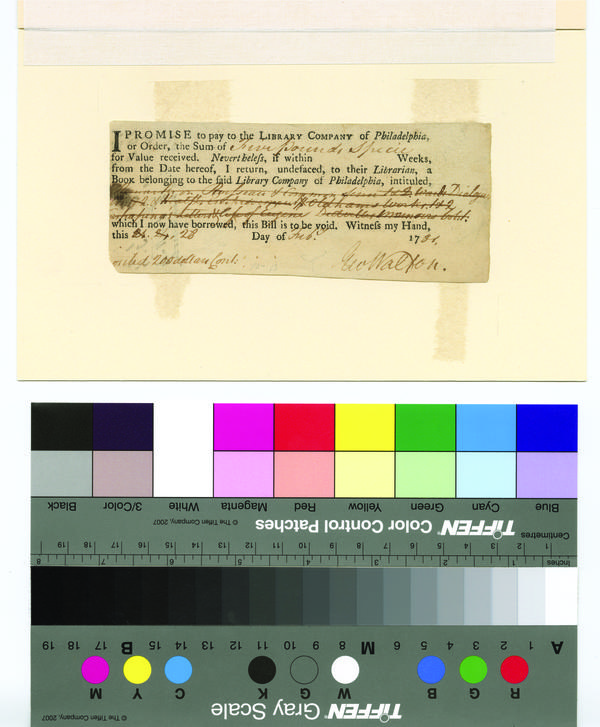 I PROMISE to pay to the LIBRARY COMPANY of Philadelphia,
or Order, the Sum of Five Pounds Specie
for Value received. Nevertheless, if within Weeks,
from the Date hereof, I return, undefaced, to their Librarian, a
Book belonging to the said Library Company of Philadelphia, intituled,
which I now have borrowed, this Bill is to be void. Witness my Hand,
this 28 Day of Feb. 1781.
200 dollars Cont. Geo Walton.
Black 3/Color White Magenta Red Yellow Green Cyan Blue
© The Tiffen Company, 2007 TIFFEN Color Control Patches
Centimetres
19 18 17 16 15 14 13 12 11 10 9 8 7 6 5 4 3 2 1
8 7 6 5 4 3 2 1 Inches
19 18 17 B 15 14 13 12 11 10 9 8 M 6 5 4 3 2 1 A
M Y C K G W B G R
© The Tiffen Company, 2007 TIFFEN Gray Scale